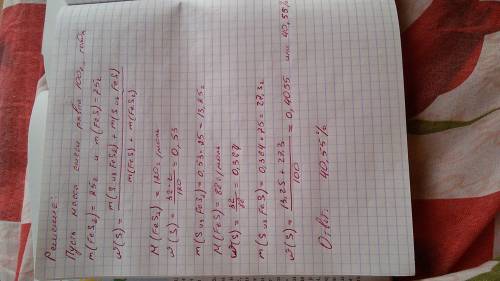 Решение:
Пусть масса смеси равна 100г, тогда
m(FeS₂) = 25г и m(FeS) = 75г
ω(S) = (m(S из FeS₂) + m(S из FeS)) / (m(FeS) + m(FeS₂))
M(FeS₂) = 120 г/моль
ω(S) = 32·2/120 = 0,53
m(S из FeS₂) = 0,53·25 = 13,25г
M(FeS) = 88 г/моль
ω(S) = 32/88 = 0,364
m(S из FeS) = 0,364·75 = 27,3г
ω(S) = (13,25 + 27,3)/100 = 0,4055 или 40,55%
Ответ: 40,55%